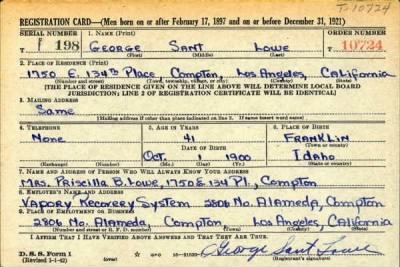 T-10724
REGISTRATION CARD—(Men born on or after February 17, 1897 and on or before December 31, 1921)
SERIAL NUMBER 1. NAME (Print) ORDER NUMBER
T 198 GEORGE SANT LOWE 10724
(First) (Middle) (Last)
2. PLACE OF RESIDENCE (Print)
1750 E. 134th Place Compton, Los Angeles, California
(Number and street) (Town, township, village, or city) (County) (State)
[THE PLACE OF RESIDENCE GIVEN ON THE LINE ABOVE WILL DETERMINE LOCAL BOARD
JURISDICTION; LINE 2 OF REGISTRATION CERTIFICATE WILL BE IDENTICAL]
3. MAILING ADDRESS
Same
[Mailing address if other than place indicated on line 2. If same insert word same]
4. TELEPHONE 5. AGE IN YEARS 6. PLACE OF BIRTH
None 41 FRANKLIN
DATE OF BIRTH (Town or county)
Oct. 1 1900 Idaho
(Exchange) (Number) (Mo.) (Day) (Yr.) (State or country)
7. NAME AND ADDRESS OF PERSON WHO WILL ALWAYS KNOW YOUR ADDRESS
Mrs. Priscilla B. Lowe, 1750 E 134 Pl., Compton
8. EMPLOYER'S NAME AND ADDRESS
Vapory Recovery System 2806 No. Alameda, Compton
9. PLACE OF EMPLOYMENT OR BUSINESS
2806 No. Alameda, Compton Los Angeles, California
(Number and street or R. F. D. number) (Town) (County) (State)
I AFFIRM THAT I HAVE VERIFIED ABOVE ANSWERS AND THAT THEY ARE TRUE.
D. S. S. Form 1 George Sant Lowe
(Revised 1-1-42) (over) (Registrant's signature)